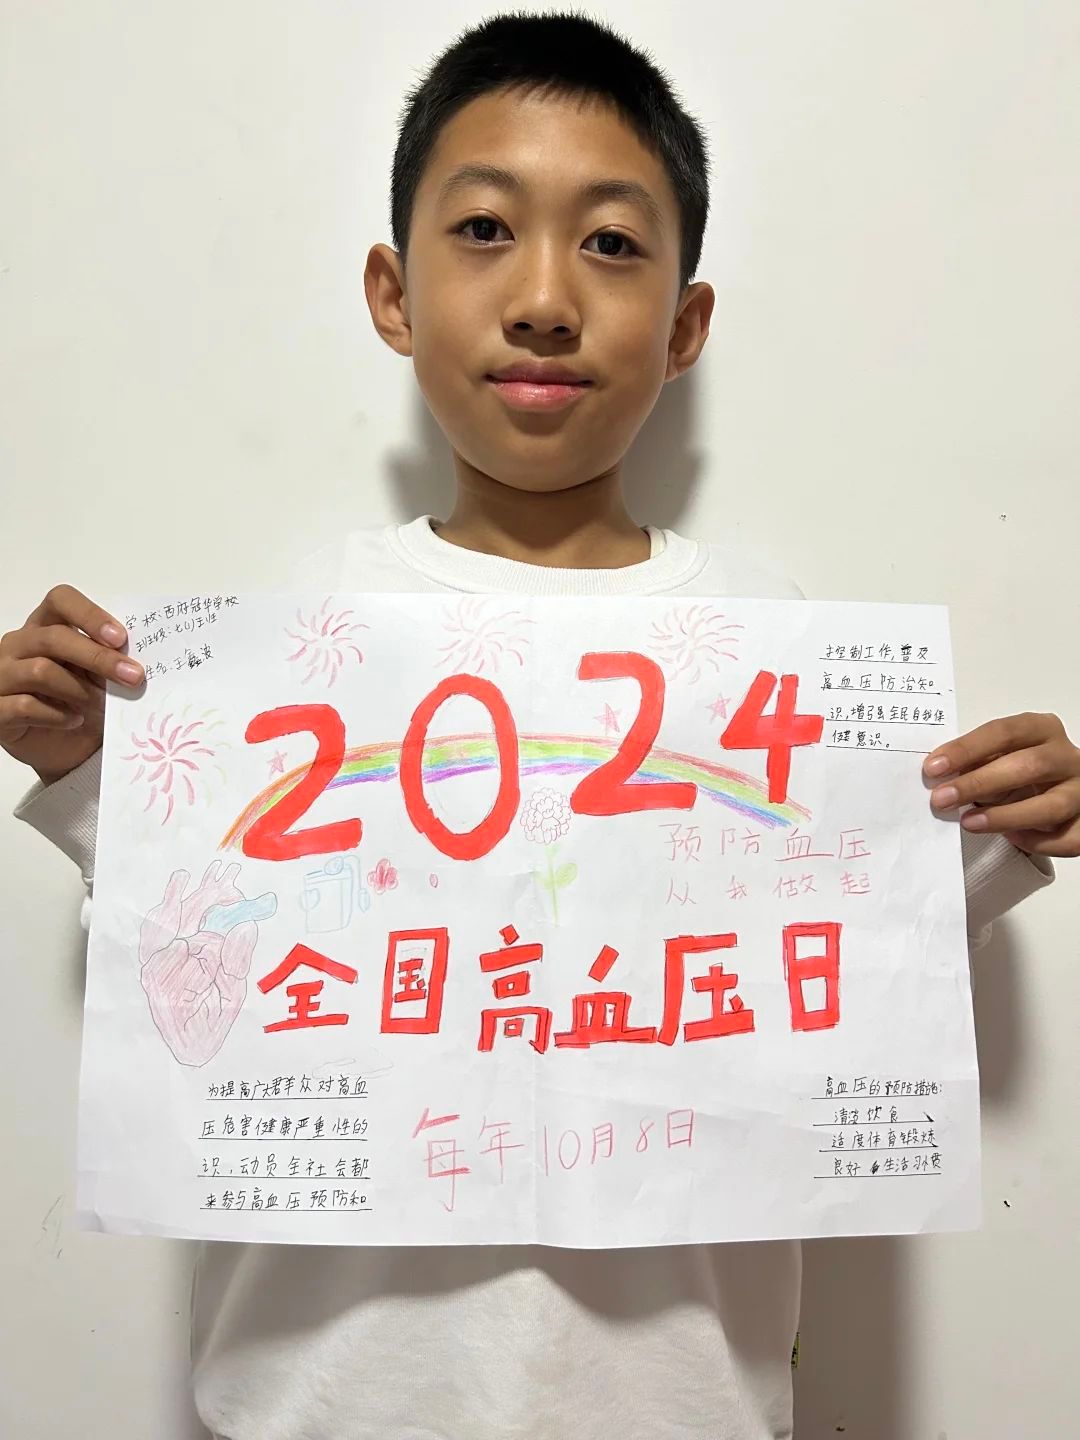 学校:西府冠华学校
班级:七(1)班
姓名:王鑫波
2024
控制工作,普及
高血压防治知
识,增强全民自我保
健意识。
预防血压
从我做起
全国高血压日
为提高广大群众对高血
压危害健康严重性的
识,动员全社会都
来参与高血压预防和
每年10月8日
高血压的预防措施:
清淡饮食
适度体育锻炼
良好生活习惯